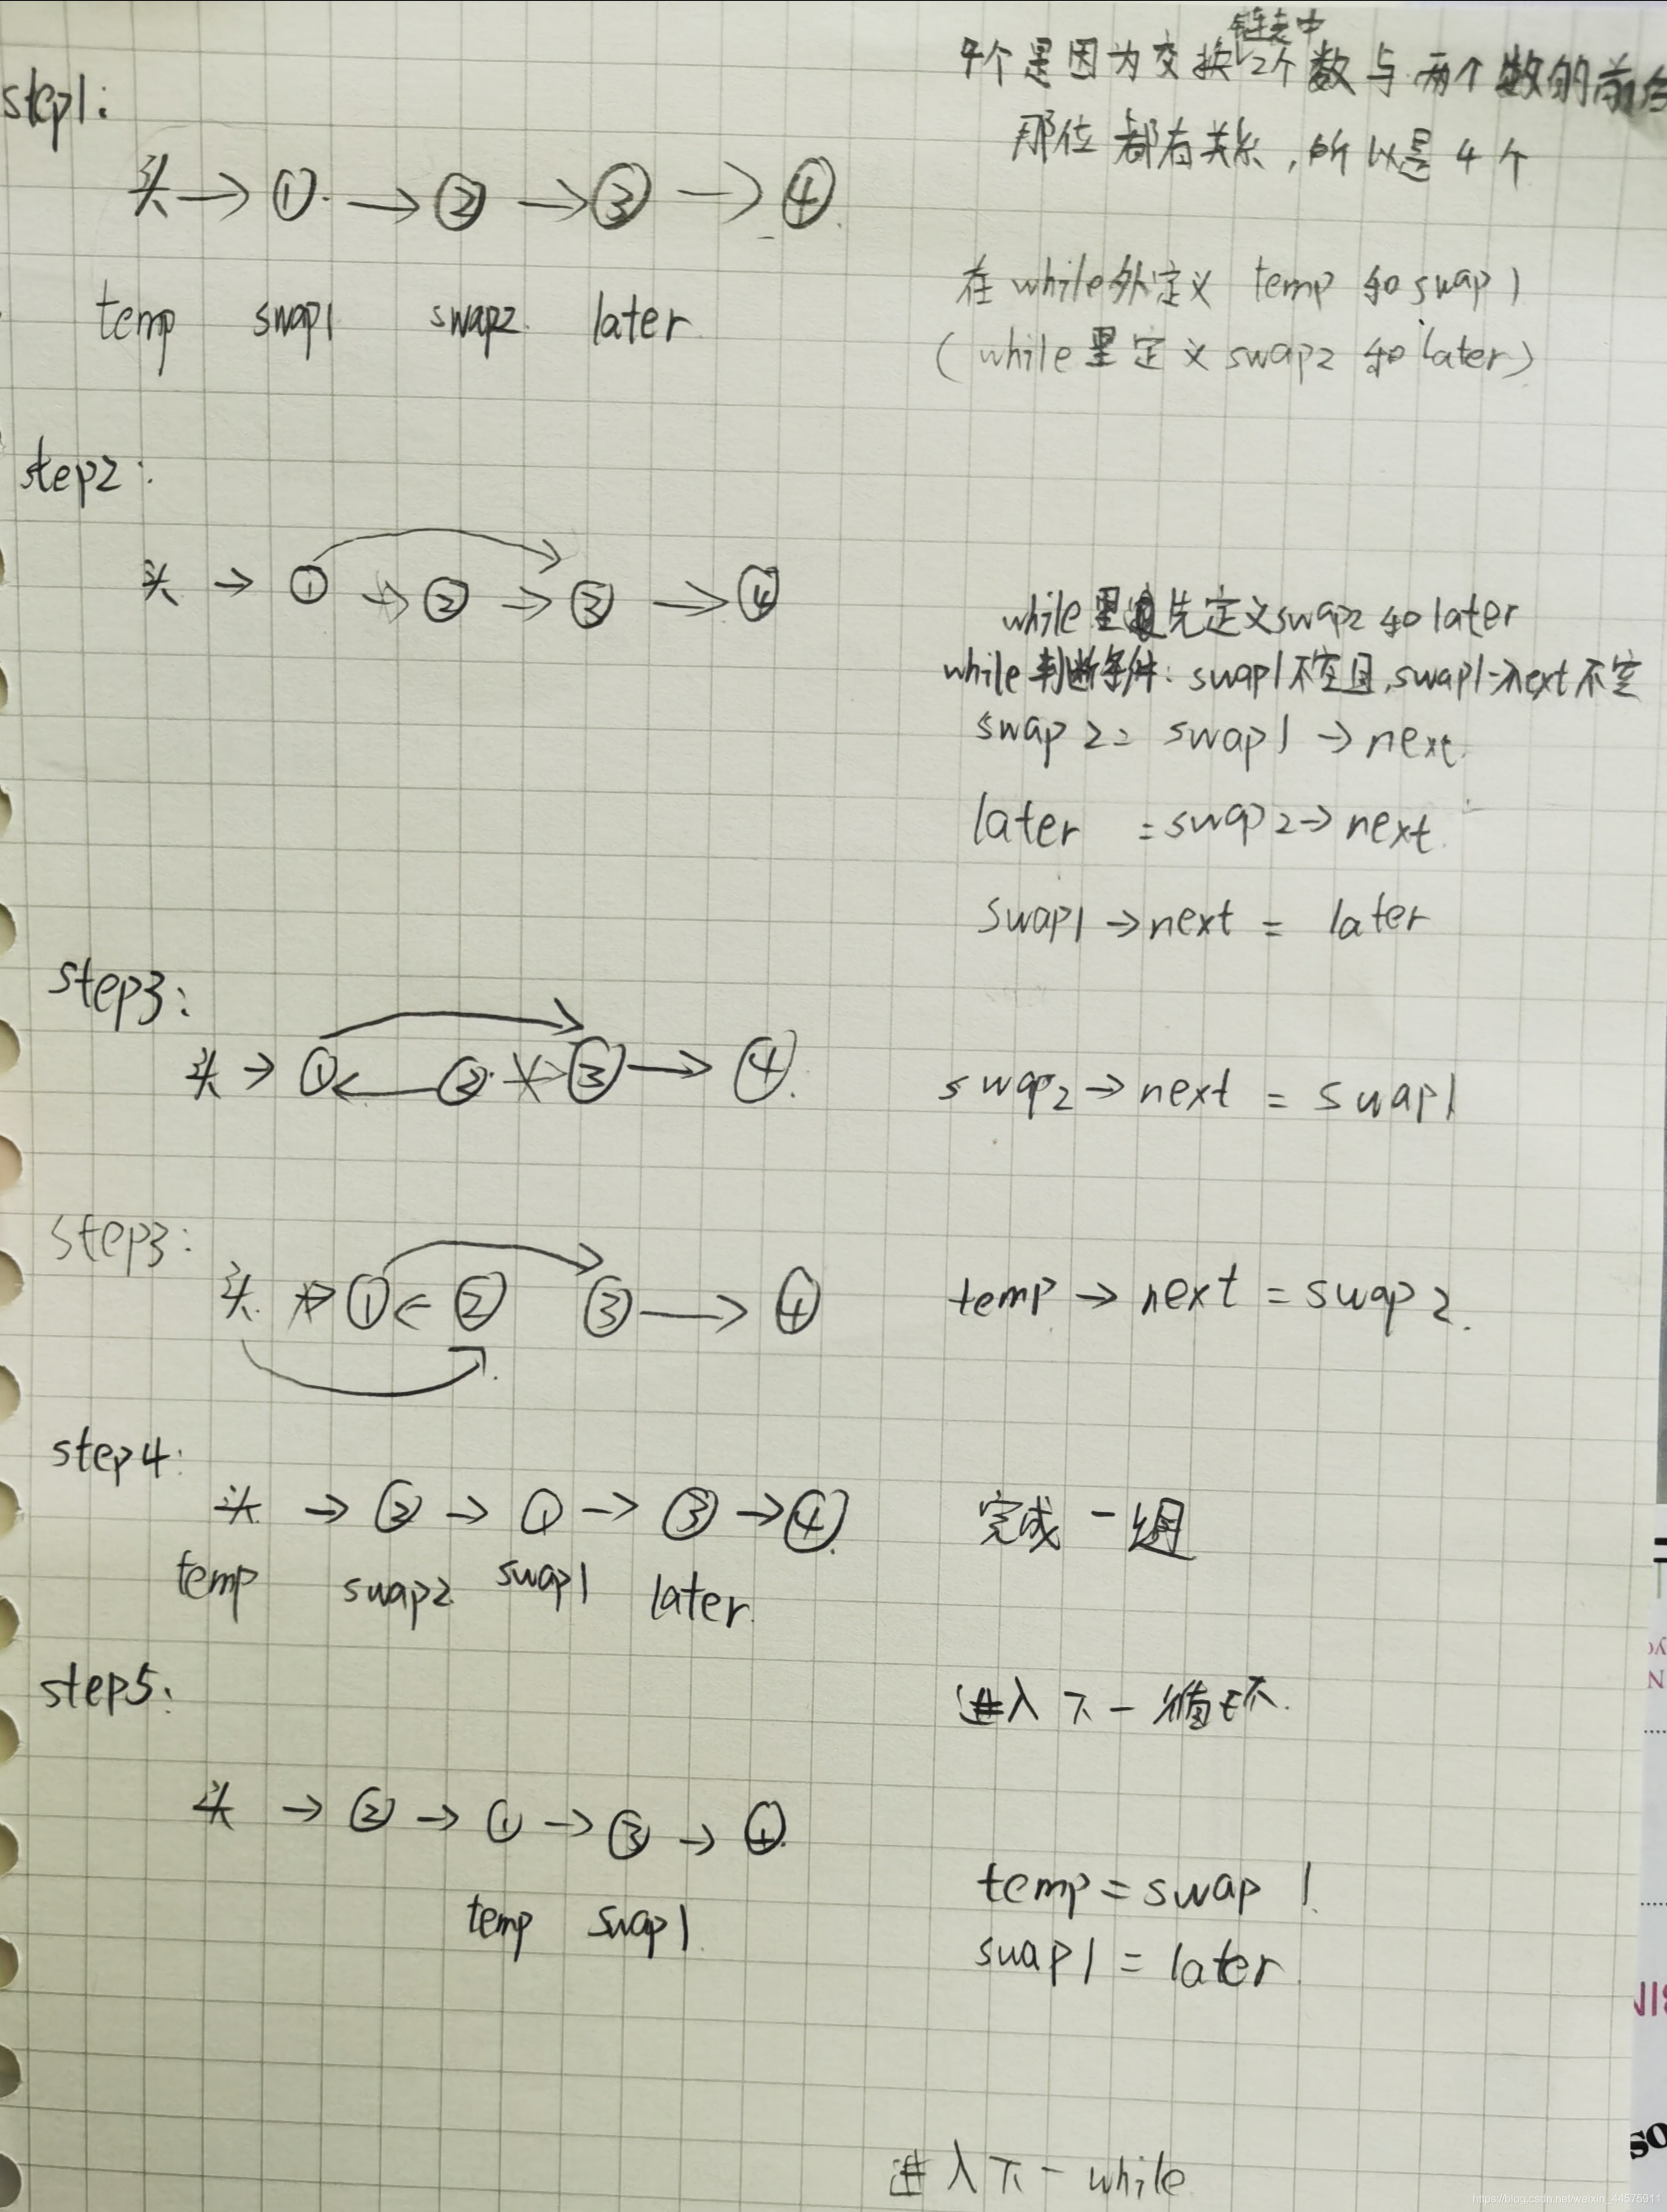 链表中
4个是因为交换2个数与两个数的前后
那位都有关系,所以是4个
step1:
头→①→②→③→④
temp swap1 swap2 later
在while外定义 temp 和 swap1
(while里定义swap2和later)
step2:
头→①→②→③→④
while里边先定义swap2和later
while判断条件:swap1不空且,swap1→next不空
swap2=swap1→next.
later =swap2→next.
swap1→next = later
step3:
头→①←②→③→④.
swap2→next = swap1
step3:
头→①←②③→④
temp→next=swap2.
step4:
头→②→①→③→④.
temp swap2 swap1 later.
完成一组
step5:
进入下一循环.
头→②→①→③→④.
temp swap1.
temp=swap1.
swap1=later.
进入下一while
https://blog.csdn.net/weixin_44575911